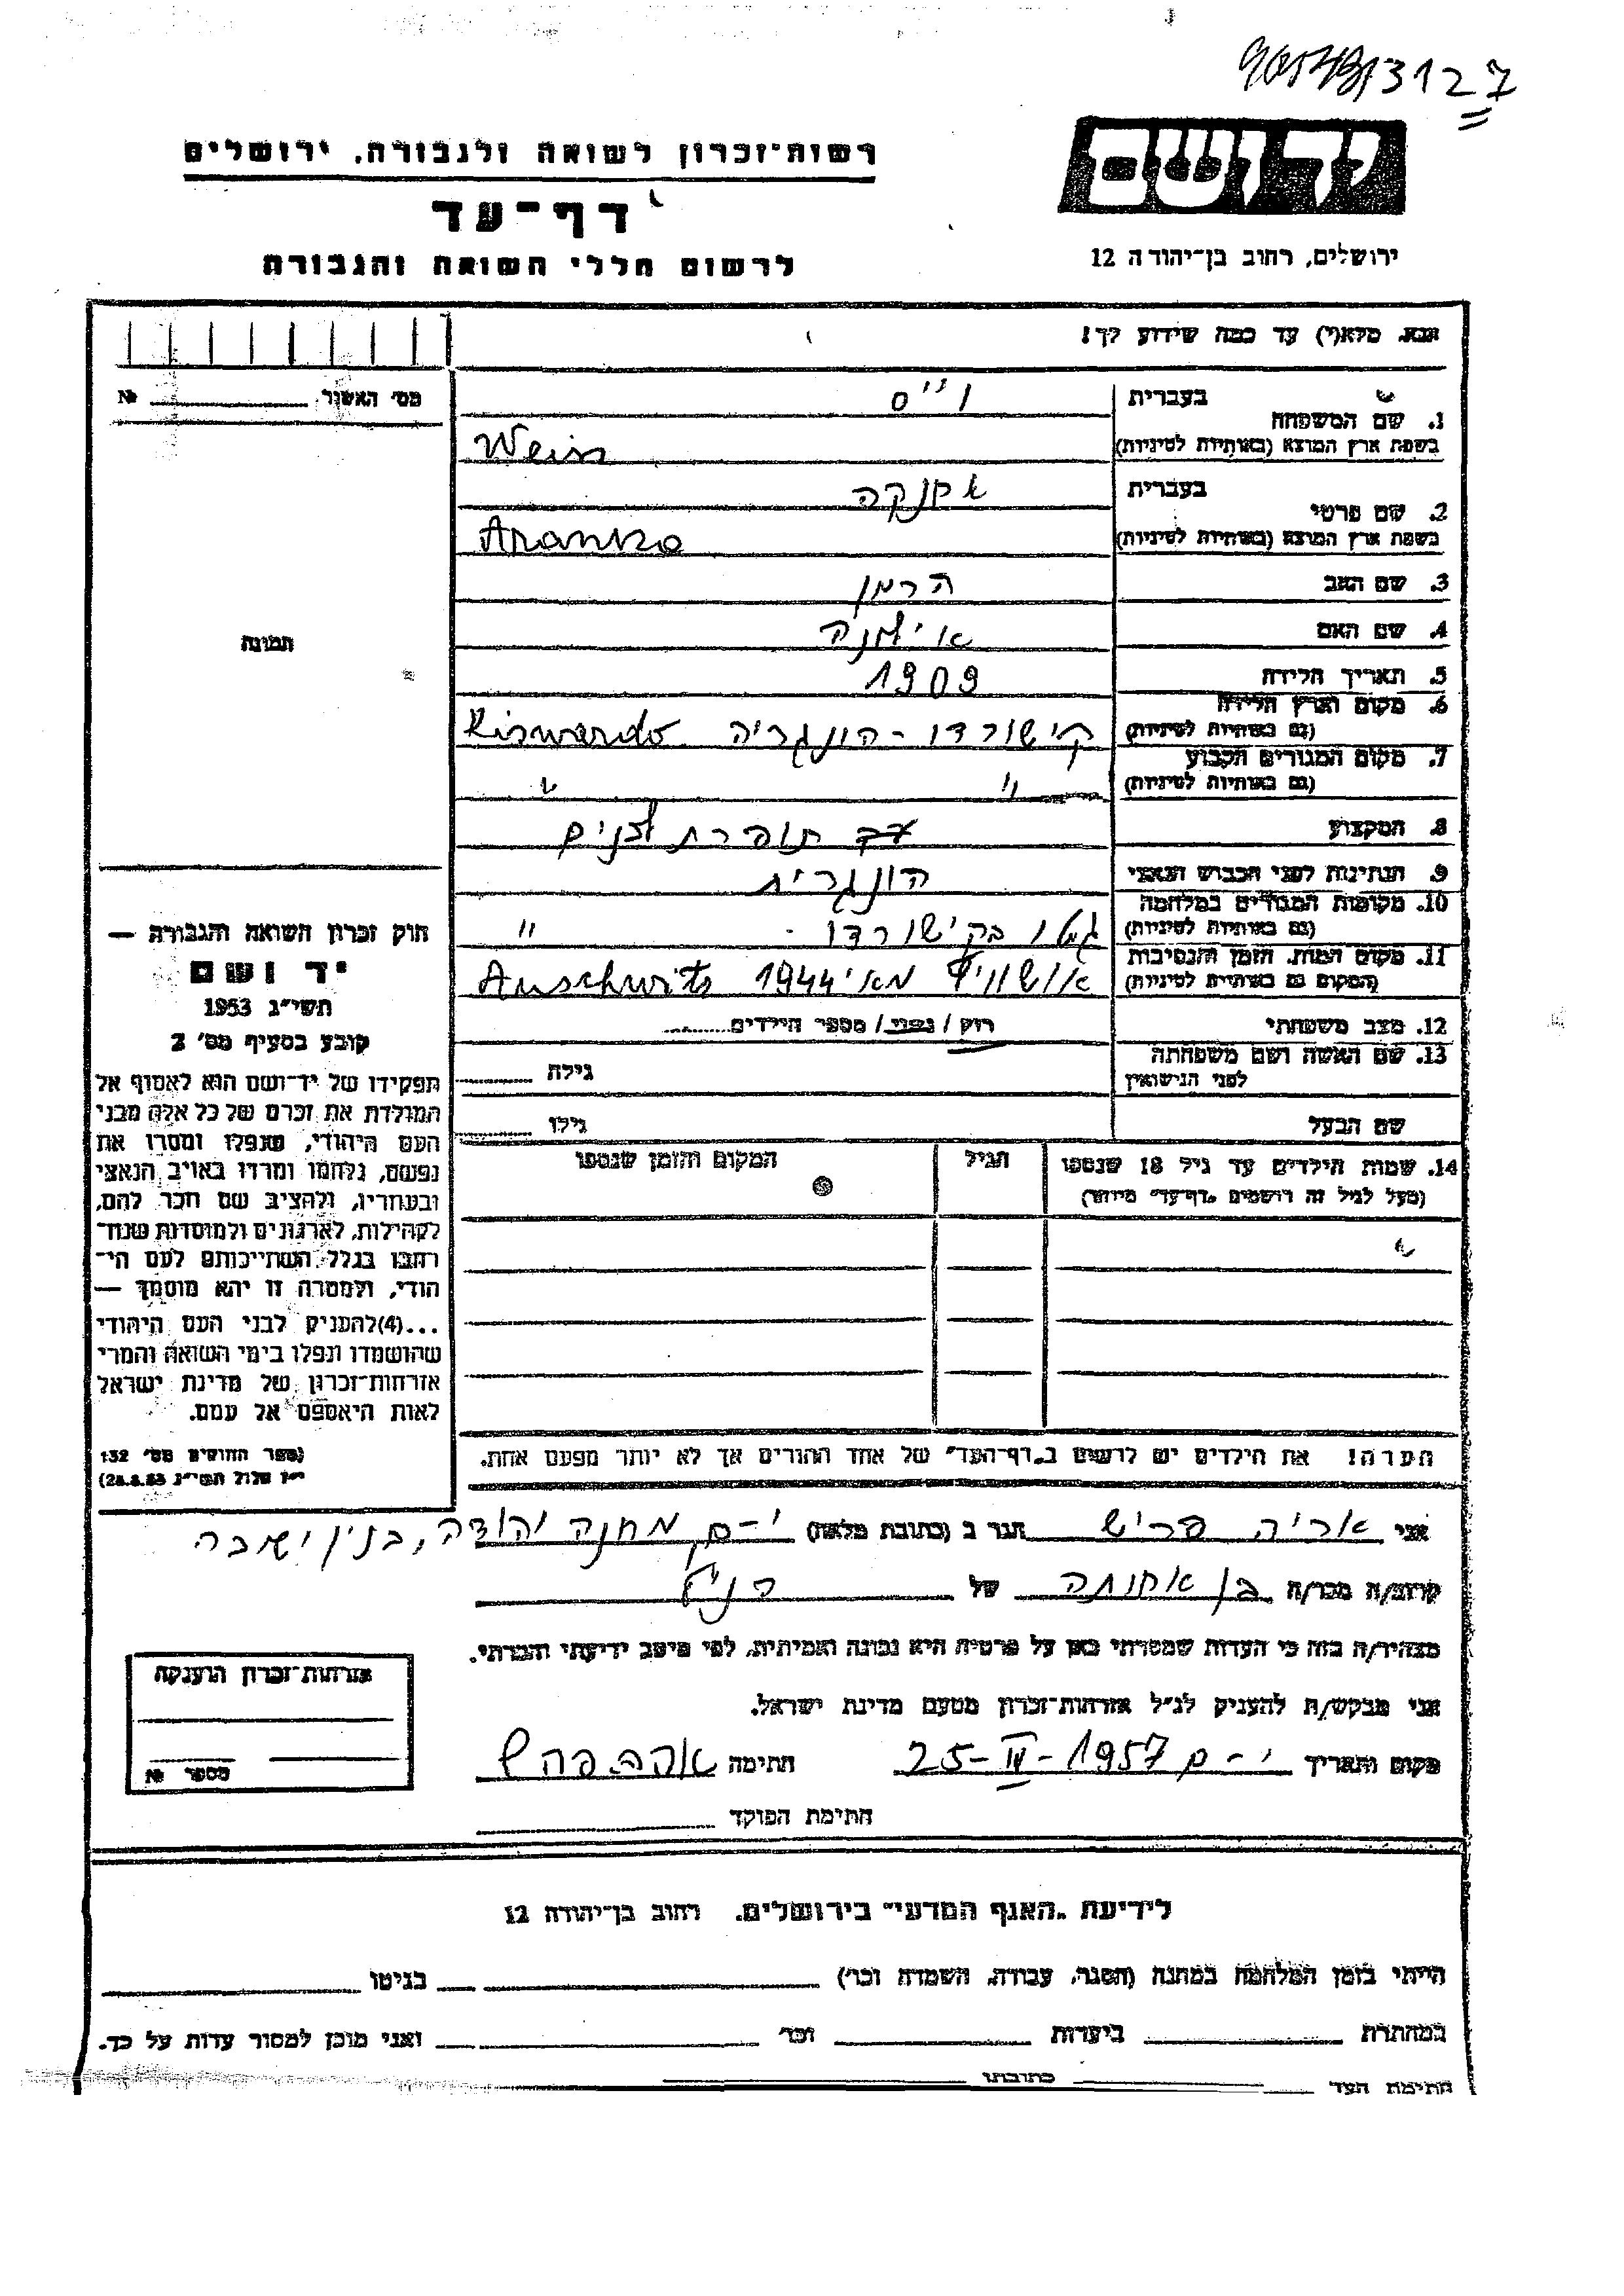 3127
רשות־זכרון לשואה ולגבורה, ירושלים
יד ושם
דף־עד
ירושלים, רחוב בן־יהודה 12
לרשום חללי השואה והגבורה
אנא, מלא(י) עד כמה שידוע לך!
מס׳ האשור № 
1. שם המשפחה
בעברית וייס
בשפת ארץ המוצא (באותיות לטיניות) Weiss
2. שם פרטי
בעברית
בשפת ארץ המוצא (באותיות לטיניות) Aranka
3. שם האב הרמן
4. שם האם
5. תאריך הלידה 1909
6. מקום וארץ הלידה (גם באותיות לטיניות) קישורדו - הונגריה Kiswardo
7. מקום המגורים הקבוע (גם באותיות לטיניות) " "
8. המקצוע תופרת לבנים
9. הנתינות לפני הכבוש הנאצי הונגרית
10. מקומות המגורים במלחמה (גם באותיות לטיניות) גטו בקישורדו - "
11. מקום המות, הזמן והנסיבות (המקום גם באותיות לטיניות) אושוויץ מאי 1944 Auschwits
12. מצב משפחתי רוק / נשוי / מספר הילדים
13. שם האשה ושם משפחתה לפני הנישואין גילה
שם הבעל גילו
14. שמות הילדים עד גיל 18 שנספו (מעל לגיל זה רושמים „דף־עד״ מיוחד) הגיל המקום והזמן שנספו
הערה! את הילדים יש לרשום ב„דף־העד״ של אחד ההורים אך לא יותר מפעם אחת.
תמונה
חוק זכרון השואה והגבורה —
יד ושם
תשי״ג 1953
קובע בסעיף מס׳ 2
תפקידו של יד־ושם הוא לאסוף אל
המולדת את זכרם של כל אלה מבני
העם היהודי, שנפלו ומסרו את
נפשם, נלחמו ומרדו באויב הנאצי
ובעוזריו, ולהציב שם וזכר להם,
לקהילות, לארגונים ולמוסדות שנח־
רבו בגלל השתייכותם לעם הי־
הודי, ולמטרה זו יהא מוסמך —
...(4)להעניק לבני העם היהודי
שהושמדו ונפלו בימי השואה והמרי
אזרחות־זכרון של מדינת ישראל
לאות היאספם אל עמם.
(ספר החוקים מס׳ 132
י״ז אלול תשי״ג 28.8.53)
אני אריה פריש הגר ב (כתובת מלאה) י-ם מחנה יהודה, בנין ישיבה
קרוב/ה מכר/ה בן אחותה של הנ״ל
מצהיר/ה בזה כי העדות שמסרתי כאן על פרטיה היא נכונה ואמיתית, לפי מיטב ידיעתי והכרתי.
אני מבקש/ת להעניק לנ״ל אזרחות־זכרון מטעם מדינת ישראל.
מקום ותאריך י-ם 25-IV-1957 חתימה
חתימת הפוקד
אזרחות־זכרון הוענקה
מספר №
לידיעת „האגף המדעי״ בירושלים, רחוב בן־יהודה 12
הייתי בזמן המלחמה במחנה (הסגר, עבודה, השמדה וכר׳) בגיטו
במחתרת ביערות וכר׳ ואני מוכן למסור עדות על כך.
חתימת העד כתובתו